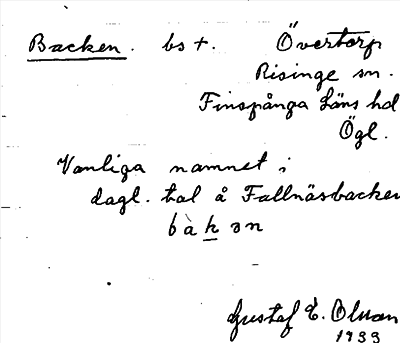 Backen. bs t. Övertorp
Risinge sn.
Finspånga Läns hd
Ögl.
Vanliga namnet i
dagl. tal å Fallnäsbacken
bàkən
Gustaf E. Olsson
1933